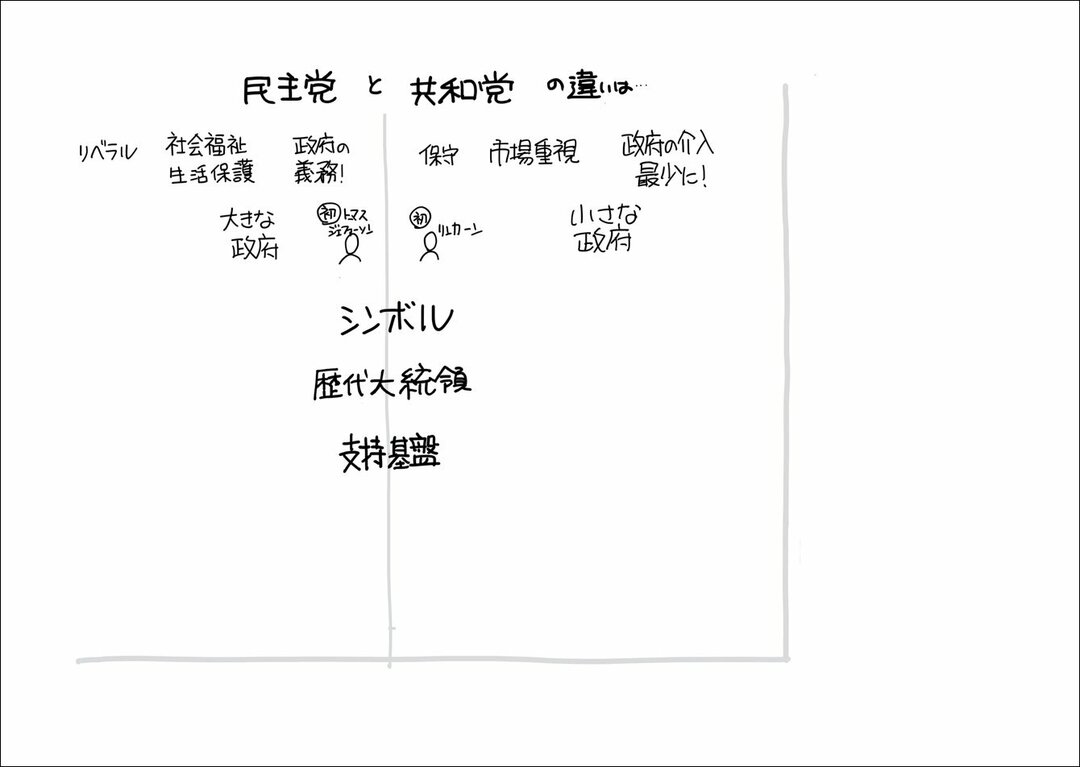 民主党 と 共和党 の違いは…
リベラル
社会福祉
生活保護
政府の
義務！
保守
市場重視
政府の介入
最少に！
大きな
政府
初 トマス
ジェファーソン
初
リンカーン
小さな
政府
シンボル
歴代大統領
支持基盤